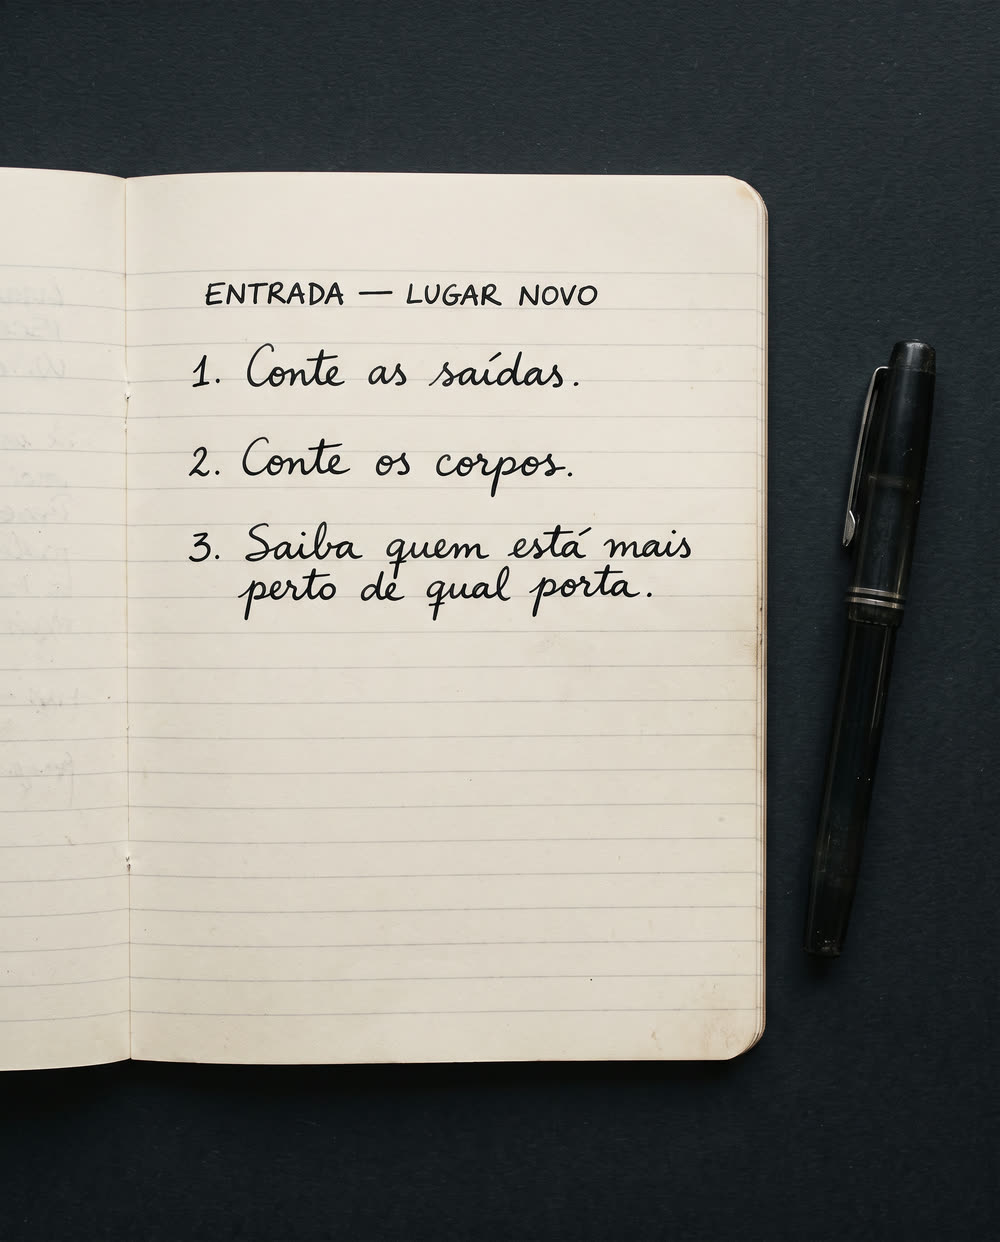 ENTRADA — LUGAR NOVO
1. Conte as saídas.
2. Conte os corpos.
3. Saiba quem está mais
perto de qual porta.